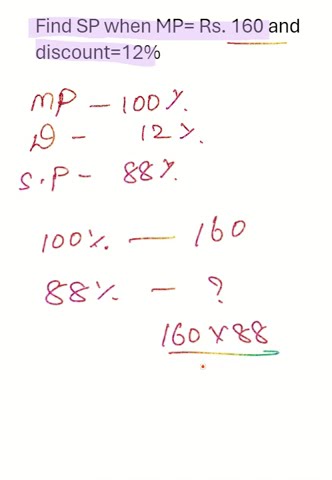 Find SP when MP= Rs. 160 and
discount=12%
MP – 100%.
D – 12%.
S.P – 88%.
100% — 160
88% — ?
160 × 88